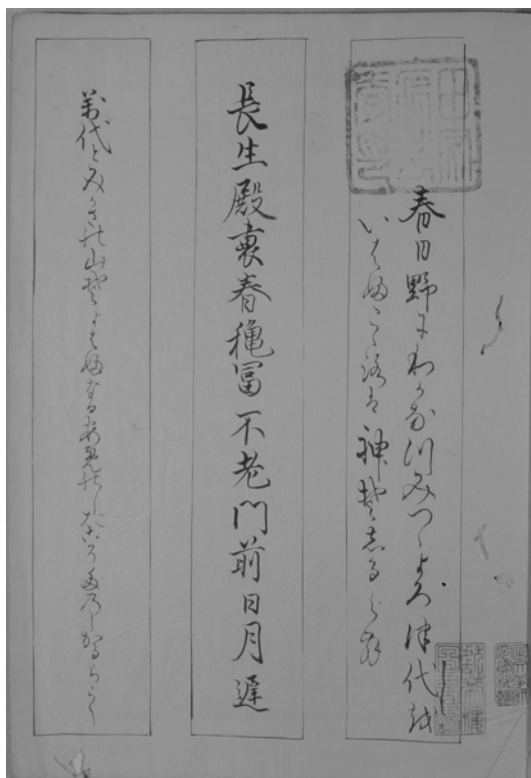 春日野にわかな川みつゝよろ津代越
いはふこゝ路は神そしるらむ
長生殿裏春穐冨不老門前日月遲
萬代とみかさの山そよはふなるあめのしたこそたのしかるらし